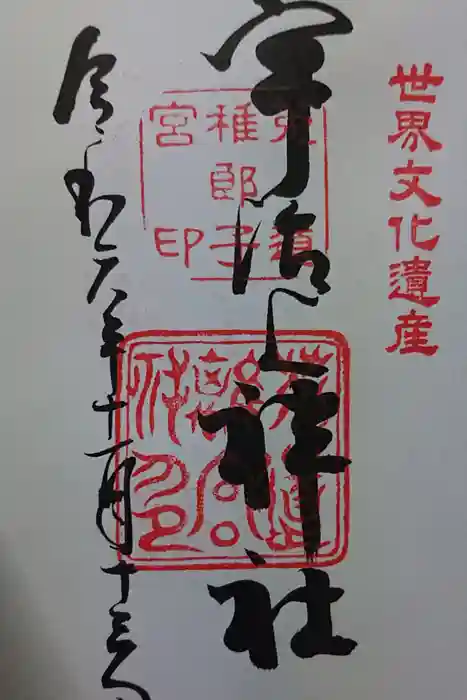 世界文化遺産
宇治上神社
稚郎子
宮印
令和六年十一月十三日